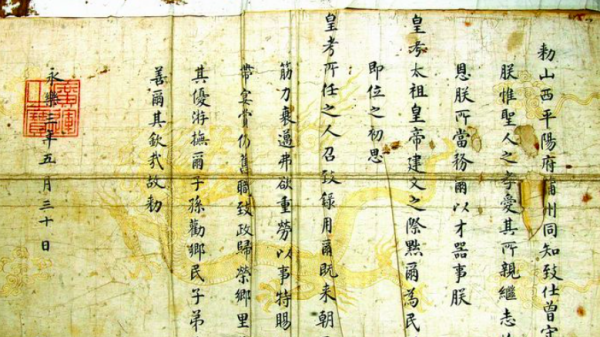 勑山西平陽府蒲州同知致仕曾守
朕惟聖人之孝愛其所親繼志
恩朕所當務爾以才器事朕
皇考太祖皇帝建文之際黜爾為民
即位之初思
皇考所任之人召致錄用爾既来朝
筋力衰邁弗欲重勞以事特賜
帶宴賞仍舊職致政歸榮鄉里
其優游撫爾子孫勸鄉民子弟
善爾其欽哉故勑
永樂三年五月三十日
廣運之寶